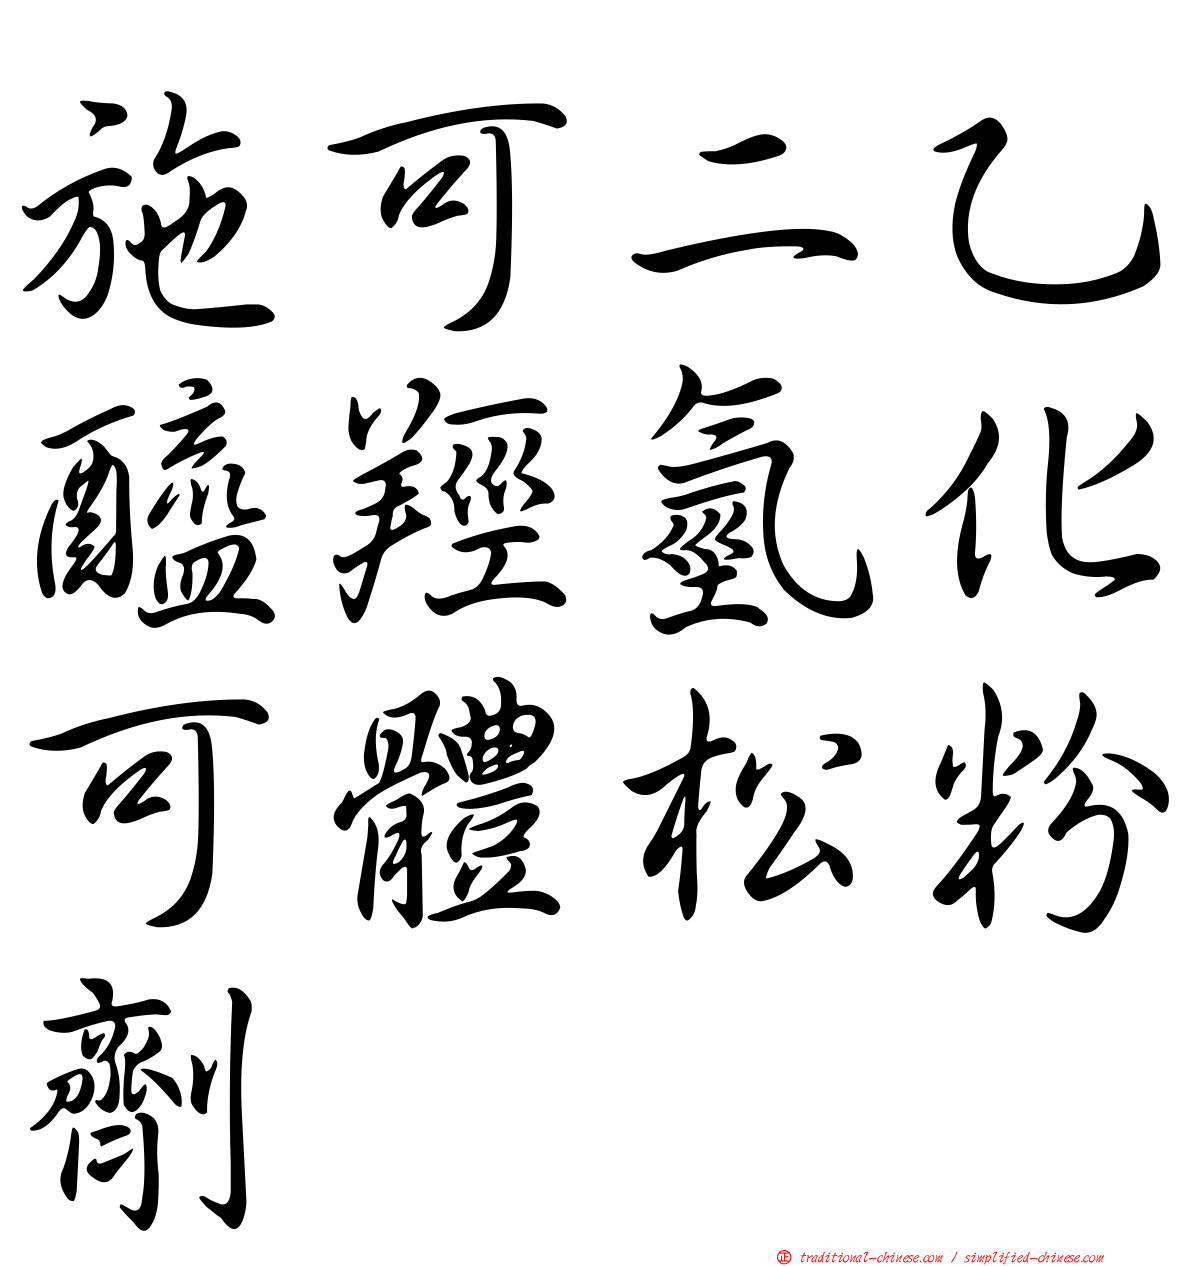 施可二乙
醯羥氫化
可體松粉
劑
㊣ traditional-chinese.com / simplified-chinese.com